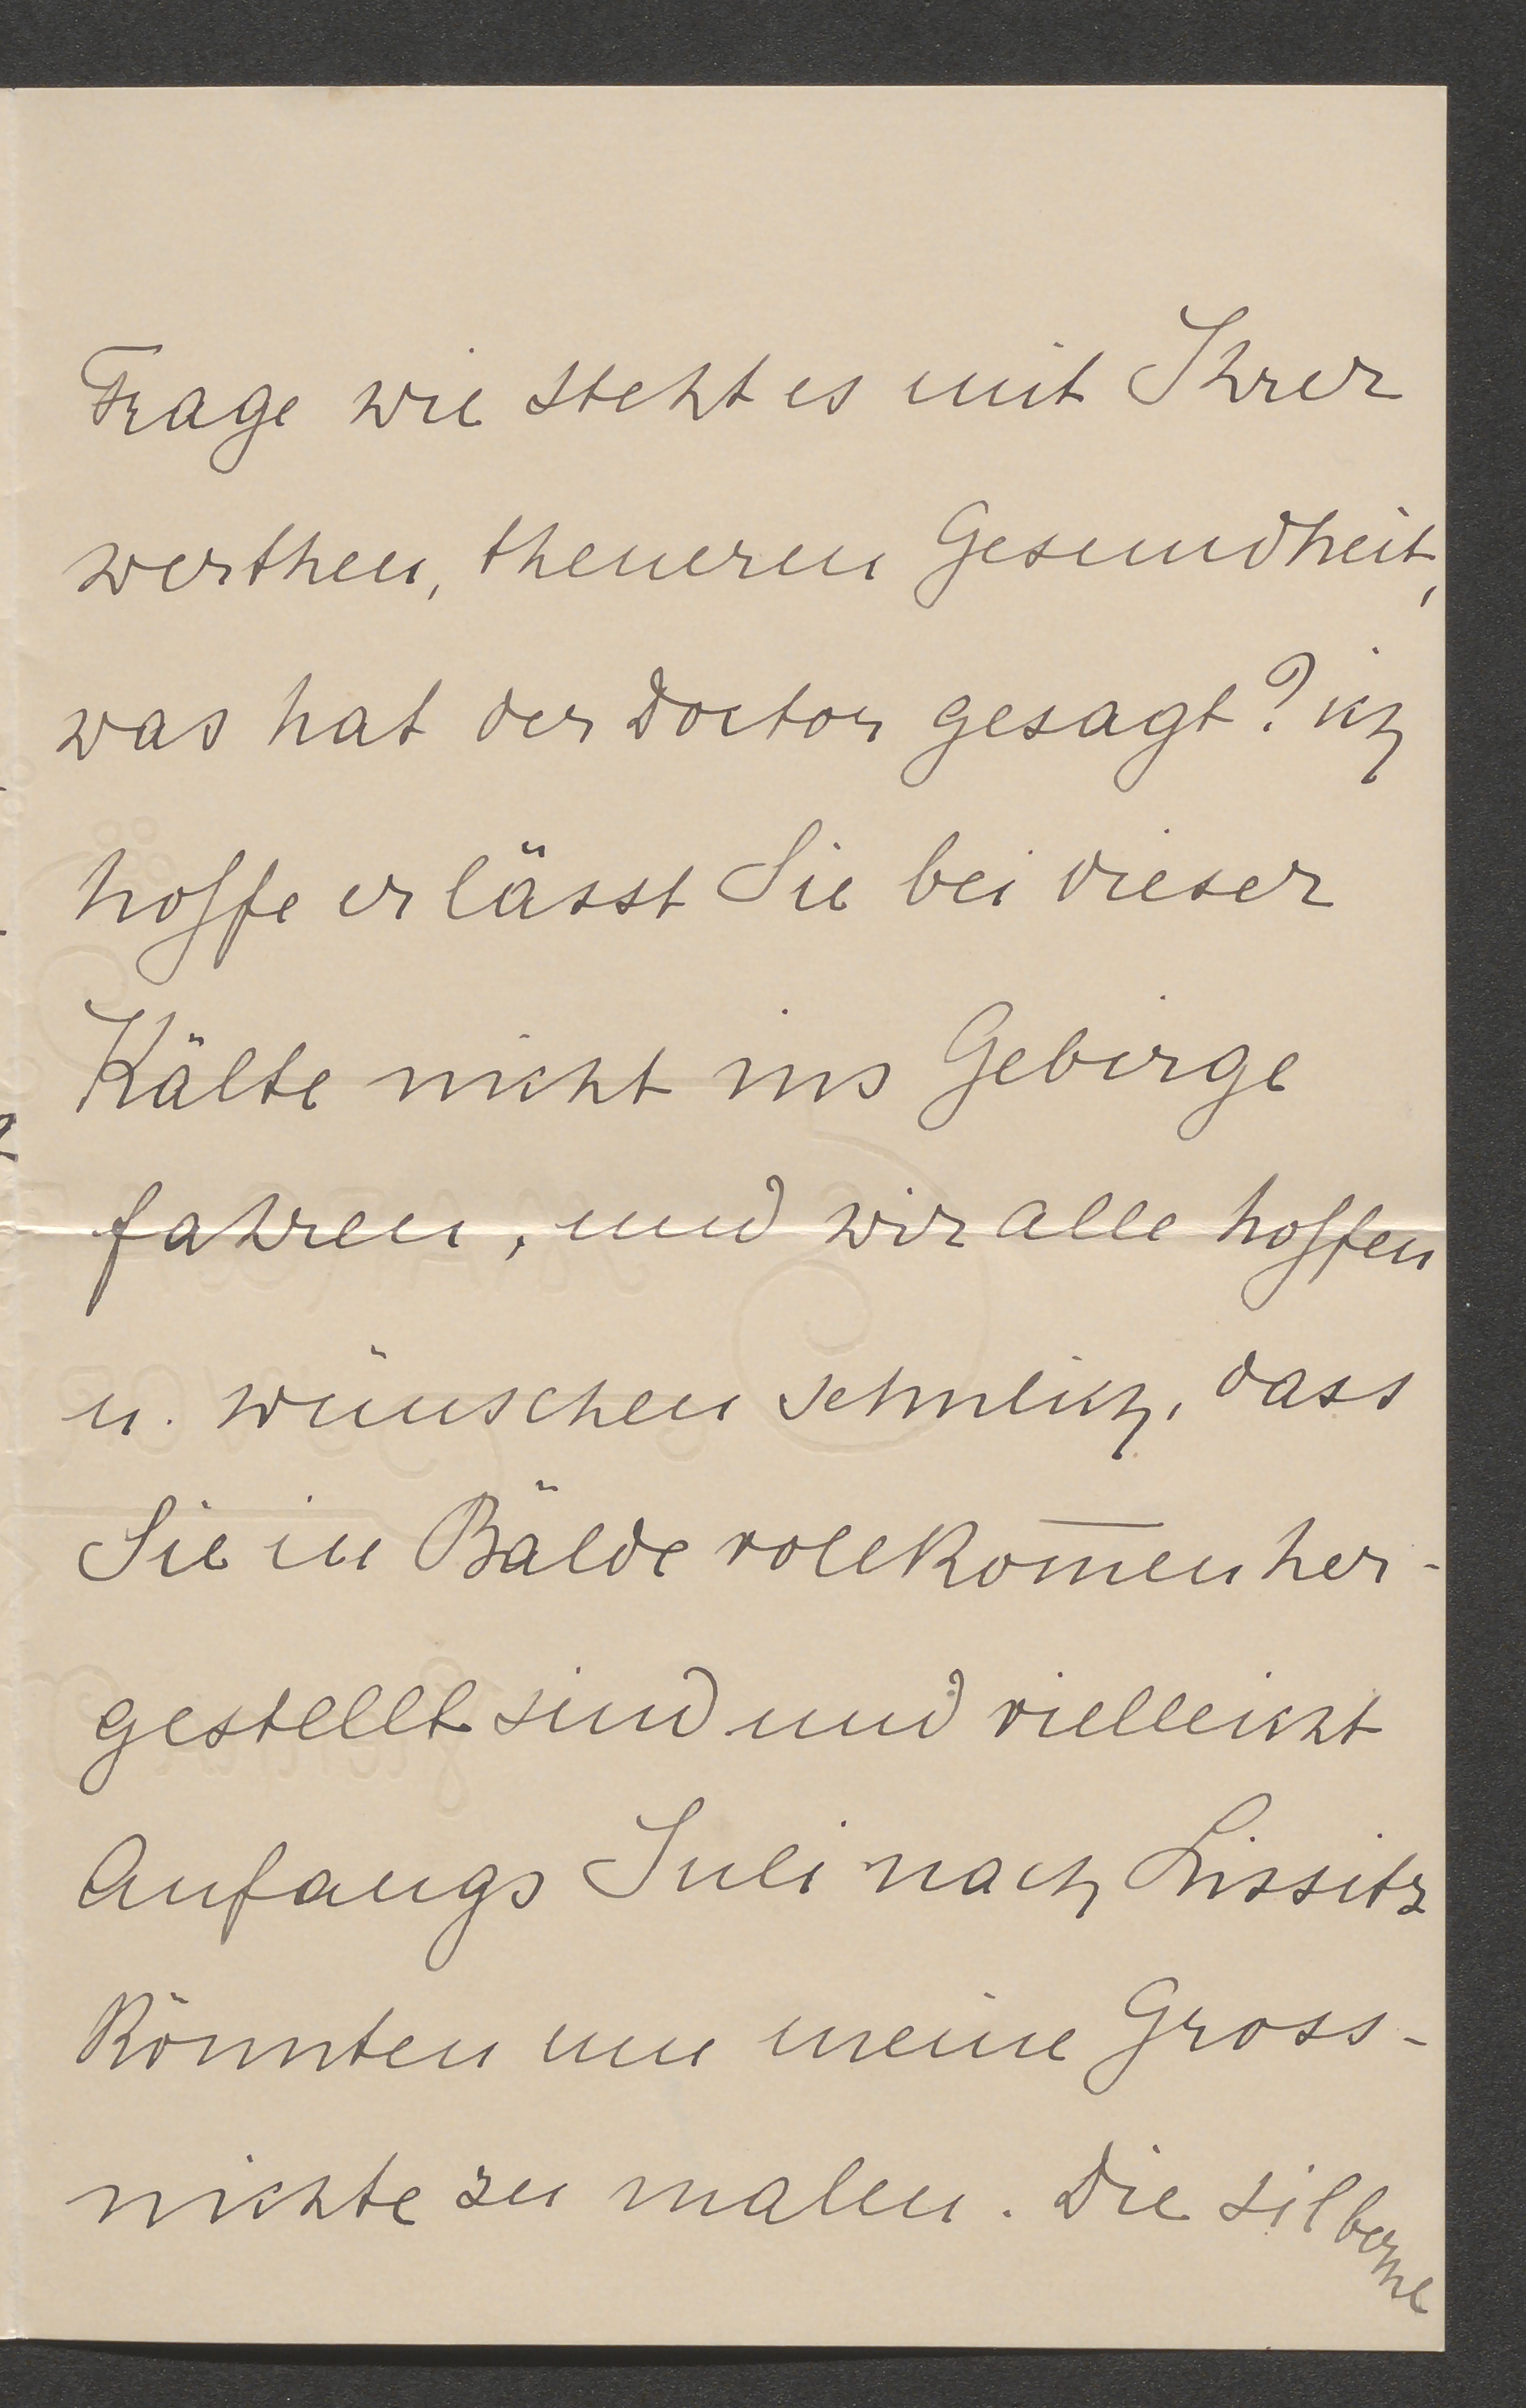 Frage wie steht es mit Ihrer
werthen, theueren Gesundheit,
was hat der Doctor gesagt? ich
hoffe er lässt Sie bei dieser
Kälte nicht ins Gebirge
fahren, und wir alle hoffen
u. wünschen sehnlich, dass
Sie in Bälde vollkom̅en her-
gestellt sind und vielleicht
Anfangs Juli nach Lissitz
könnten um meine Gross-
nichte zu malen. Die silberne